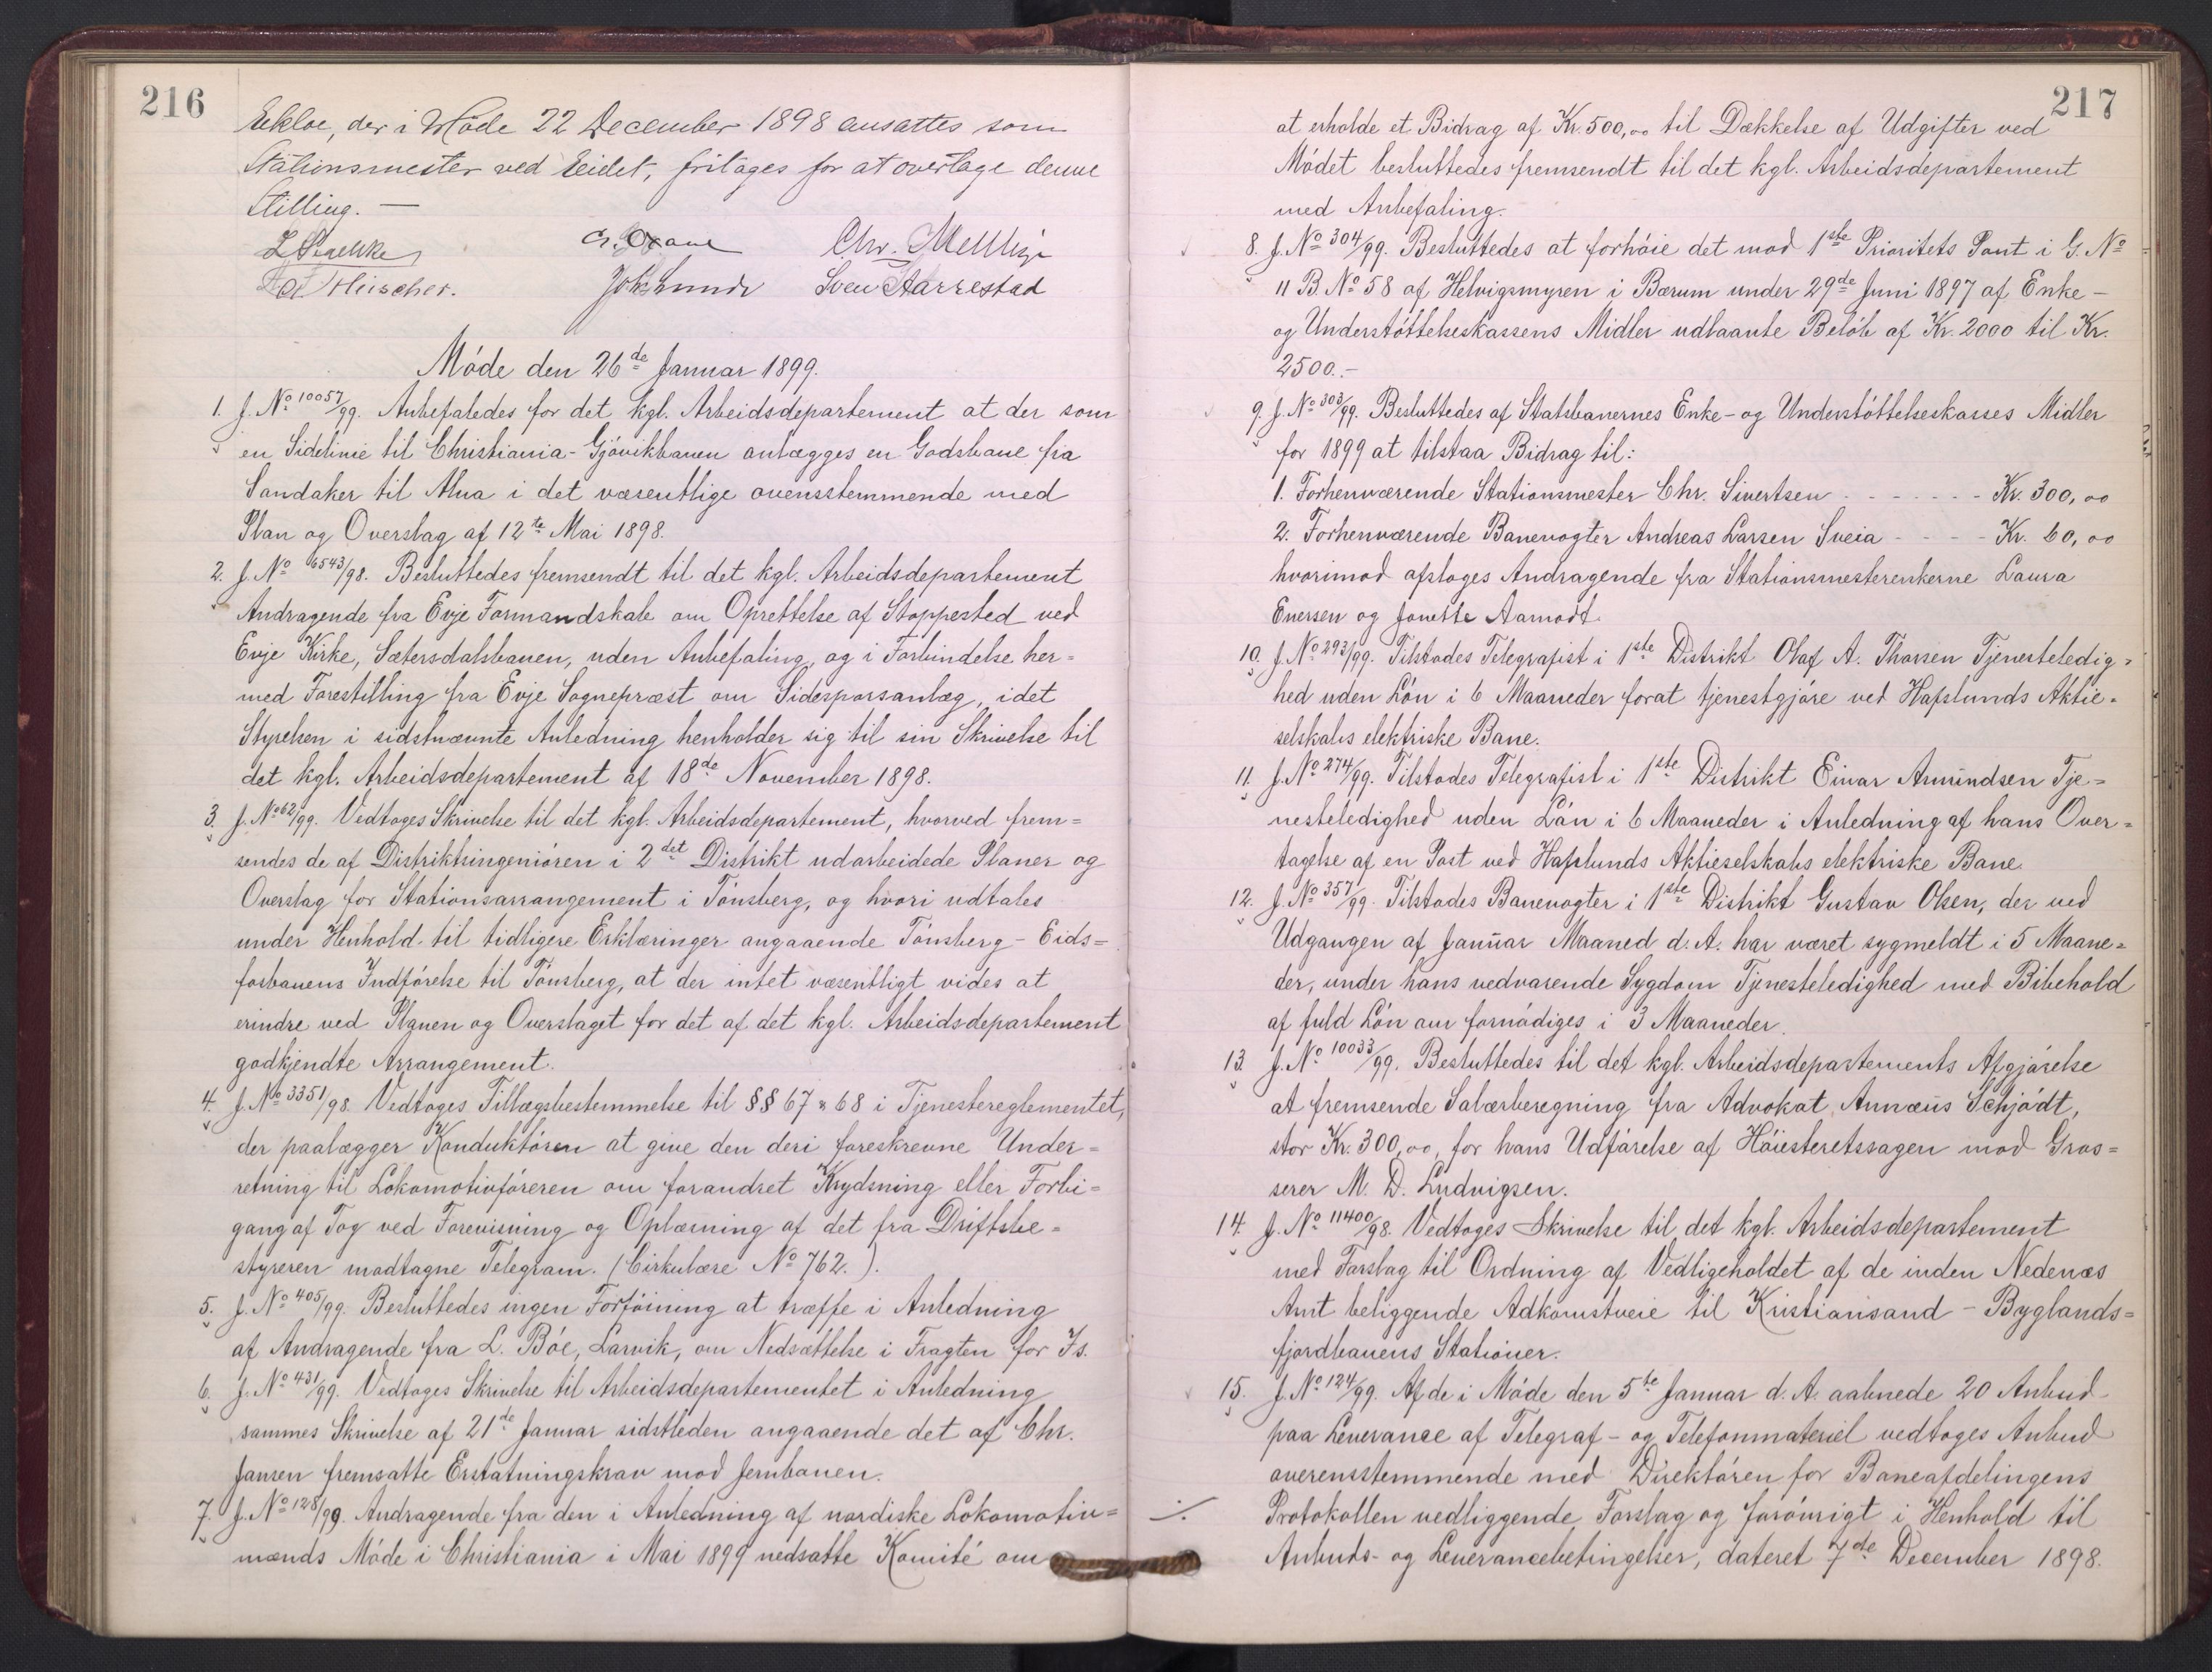 216
Eekloe, der i Möde 22 December 1898 ansattes som
Stationsmester ved Eidet, fritages for at overtage denne
Stilling. —
Chr.
Joh. Lunde Sven Aarrestad
Möde den 26de Januar 1899.
1. J. No 10057/99. Anbefaledes for det kgl. Arbeidsdepartement at der som
en Sidelinie til Christiania-Gjövikbanen anlægges en Godsbane fra
Sandaker til Alna i det væsentlige overensstemmende med
Plan og Overslag af 12te Mai 1898.
2. J. No 6543/98. Besluttedes fremsendt til det kgl. Arbeidsdepartement
Andragende fra Evje Formandskab om Oprettelse af Stoppested ved
Evje Kirke, Sætersdalsbanen, uden Anbefaling, og i Forbindelse her=
med Forestilling fra Evje Sognepræst om Sidesporsanlæg, idet
Styrelsen i sidstnævnte Anledning henholder sig til sin Skrivelse til
det kgl. Arbeidsdepartement af 18de November 1898.
3. J. No 62/99. Vedtoges Skrivelse til det kgl. Arbeidsdepartement, hvorved frem=
sendes de af Distriktsingeniören i 2det Distrikt udarbeidede Planer og
Overslag for Stationsarrangement i Tönsberg, og hvori udtales
under Henhold til tidligere Erklæringer angaaende Tönsberg-Eids=
fosbanens Indförelse til Tönsberg, at der intet væsentligt vides at
erindre ved Planen og Overslaget for det af det kgl. Arbeidsdepartement
godkjendte Arrangement.
4. J. No 3351/98. Vedtoges Tillægsbestemmelse til §§ 67 & 68 i Tjenestereglementet,
der paalægger Konduktören at give den deri foreskrevne Under=
retning til Lokomotivföreren om forandret Krydsning eller Forbi=
gang af Tog ved Forevisning og Oplæsning af det fra Driftsbe=
styreren modtagne Telegram. (Cirkulære No 762.).
5. J. No 405/99. Besluttedes ingen Forföining at træffe i Anledning
af Andragende fra L. Böe, Larvik, om Nedsættelse i Fragten for Is.
6. J. No 431/99. Vedtoges Skrivelse til Arbeidsdepartementet i Anledning
sammes Skrivelse af 21de Januar sidstleden angaaende det af Chr.
Jansen fremsatte Erstatningskrav mod Jernbanen.
7. J. No 128/99. Andragende fra den i Anledning af nordiske Lokomotiv=
mænds Möde i Christiania i Mai 1899 nedsatte Komité om
217
at erholde et Bidrag af Kr. 500,00 til Dækkelse af Udgifter ved
Mödet besluttedes fremsendt til det kgl. Arbeidsdepartement
med Anbefaling.
8. J. No 304/99. Besluttedes at forhöie det mod 1ste Prioritets Pant i G. No
11 B. No 58 af Helvigsmyren i Bærum under 29de Juni 1897 af Enke-
og Understöttelseskassens Midler udlaante Belöb af Kr. 2000 til Kr.
2500.-
9. J. No 303/99. Besluttedes af Statsbanernes Enke- og Understöttelseskasses Midler
for 1899 at tilstaa Bidrag til:
1. Forhenværende Stationsmester Chr. Sivertsen - - - - - - - Kr. 300,00
2. Forhenværende Banevogter Andreas Larsen Sveia - - - - Kr. 60,00
hvorimod afsloges Andragende fra Stationsmesterenkerne Laura
Eversen og Jonette Aamodt.
10. J. No 293/99. Tilstodes Telegrafist i 1ste Distrikt Olaf A. Thorsen Tjenesteledig=
hed uden Lön i 6 Maaneder forat tjenestgjöre ved Hafslunds Aktie=
selskabs elektriske Bane.
11. J. No 274/99. Tilstodes Telegrafist i 1ste Distrikt Einar Amundsen Tje=
nesteledighed uden Lön i 6 Maaneder i Anledning af hans Over=
tagelse af en Post ved Hafslunds Aktieselskabs elektriske Bane.
12. J. No 357/99. Tilstodes Banevogter i 1ste Distrikt Gustav Olsen, der ved
Udgangen af Januar Maaned d. A. har været sygmeldt i 5 Maane=
der, under hans vedvarende Sygdom Tjenesteledighed med Bibehold
af fuld Lön om fornödiges i 3 Maaneder.
13. J. No 10033/99. Besluttedes til det kgl. Arbeidsdepartements Afgjörelse
at fremsende Salærberegning fra Advokat Annæus Schjödt,
stor Kr. 300,00, for hans Udförelse af Höiesteretssagen mod Gros=
serer M. D. Ludvigsen.
14. J. No 11400/98. Vedtoges Skrivelse til det kgl. Arbeidsdepartement
med Forslag til Ordning af Vedligeholdet af de inden Nedenæs
Amt beliggende Adkomstveie til Kristiansand-Byglands=
fjordbanens Stationer.
15. J. No 124/99. Af de i Möde den 5te Januar d. A. aabnede 20 Anbud
paa Leverance af Telegraf- og Telefonmateriel vedtoges Anbud
overensstemmende med Direktören for Baneafdelingens
Protokollen vedliggende Forslag og forövrigt i Henhold til
Anbuds- og Leverancebetingelser, dateret 7de December 1898.